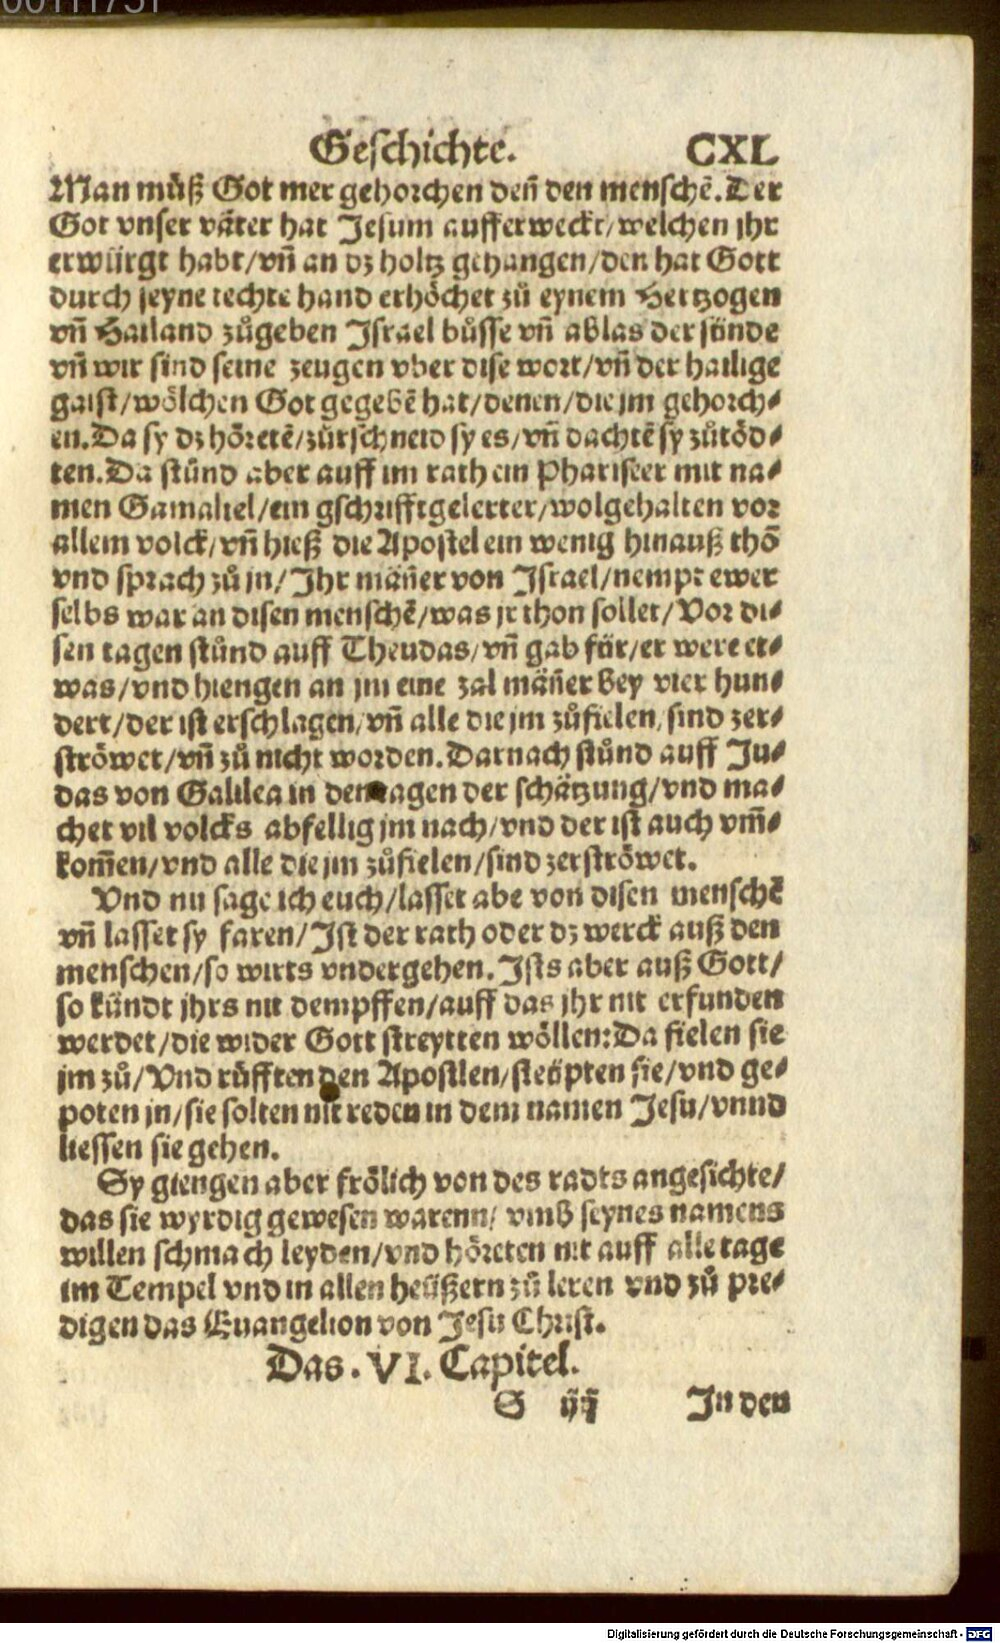 00111751
Geschichte. CXL
Man můß Got mer gehorchen deñ den menschẽ. Der
Got vnser väter hat Jesum aufferweckt/welchen jhr
erwürgt habt/vñ an dz holtz gehangen/den hat Gott
durch seyne rechte hand erhöchet zů eynem Hertzogen
vñ Hailand zůgeben Israel bůsse vñ ablas der sünde
vñ wir sind seine zeugen vber dise wort/vñ der hailige
gaist/wölchen Got gegebẽ hat/denen/die jm gehorch⸗
en. Da sy dz höretẽ/zůrschneid sy es/vñ dachtẽ sy zůtöd⸗
ten. Da stůnd aber auff im rath ein Phariseer mit na⸗
men Gamaliel/ein gschrifftgelerter/wolgehalten vor
allem volck/vñ hieß die Apostel ein wenig hinauß thõ
vnd sprach zů jn/Ihr mäñer von Israel/nempt ewer
selbs war an disen menschẽ/was jr thon sollet/Vor di⸗
sen tagen stůnd auff Theudas/vñ gab für/er were et⸗
was/vnd hiengen an jm eine zal mäñer bey vier hun⸗
dert/der ist erschlagen/vñ alle die jm zůfielen/sind zer⸗
ströwet/vñ zů nicht worden. Darnach stůnd auff Ju⸗
das von Galilea in den tagen der schätzung/vnd ma⸗
chet vil volcks abfellig jm nach/vnd der ist auch vm̃⸗
kom̃en/vnd alle die jm zůfielen/sind zerströwet.
Vnd nu sage ich euch/lasset abe von disen menschẽ
vñ lasset sy faren/Ist der rath oder dz werck auß den
menschen/so wirts vndergehen. Ists aber auß Gott/
so kündt jhrs nit dempffen/auff das jhr nit erfunden
werdet/die wider Gott streytten wöllen: Da fielen sie
jm zů/Vnd růfften den Apostlen/steüpten sie/vnd ge⸗
poten jn/sie solten nit reden in dem namen Jesu/vnnd
liessen sie gehen.
Sy giengen aber frölich von des radts angesichte/
das sie wyrdig gewesen warenn/vmb seynes namens
willen schmach leyden/vnd höreten nit auff alle tage
im Tempel vnd in allen heüßern zů leren vnd zů pre⸗
digen das Euangelion von Jesu Christ.
Das. VI. Capitel.
S iij In den
Digitalisierung gefördert durch die Deutsche Forschungsgemeinschaft - DFG